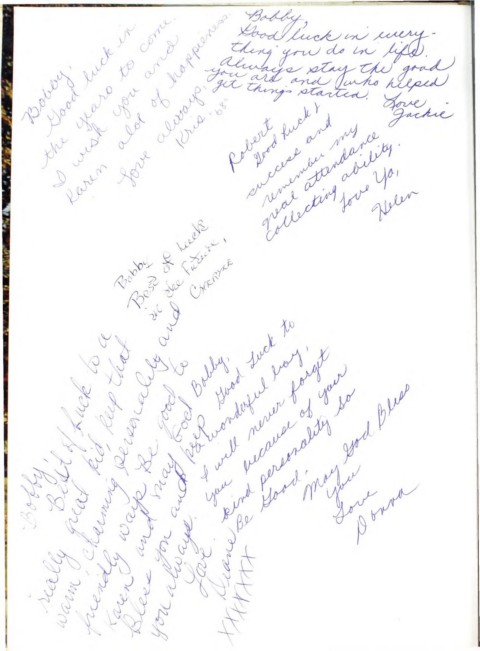 Bobby,
Good luck in
the years to come.
I wish you and
Karen alot of happiness.
Love always,
Kris. '68'
Bobby,
Good luck in every-
thing you do in life.
Always stay the good
you are and who helped
get things started.
Love
Jackie
Robert
Good luck!
success and
remember my
great attendance
collecting ability.
Love Ya,
Helen
Bobby
Best of Luck
in the future,
Bobby
Best of luck to a
really great kid, keep that
warm, charming personality and
friendly ways. Be good to
Karen and may God
Bless you and keep
you always.
Love
Diane
XXXXXXX
Bobby,
Good Luck to
a wonderful boy,
I will never forget
you because of your
kind personality so
Be Good.
May God Bless
you
Love
Donna